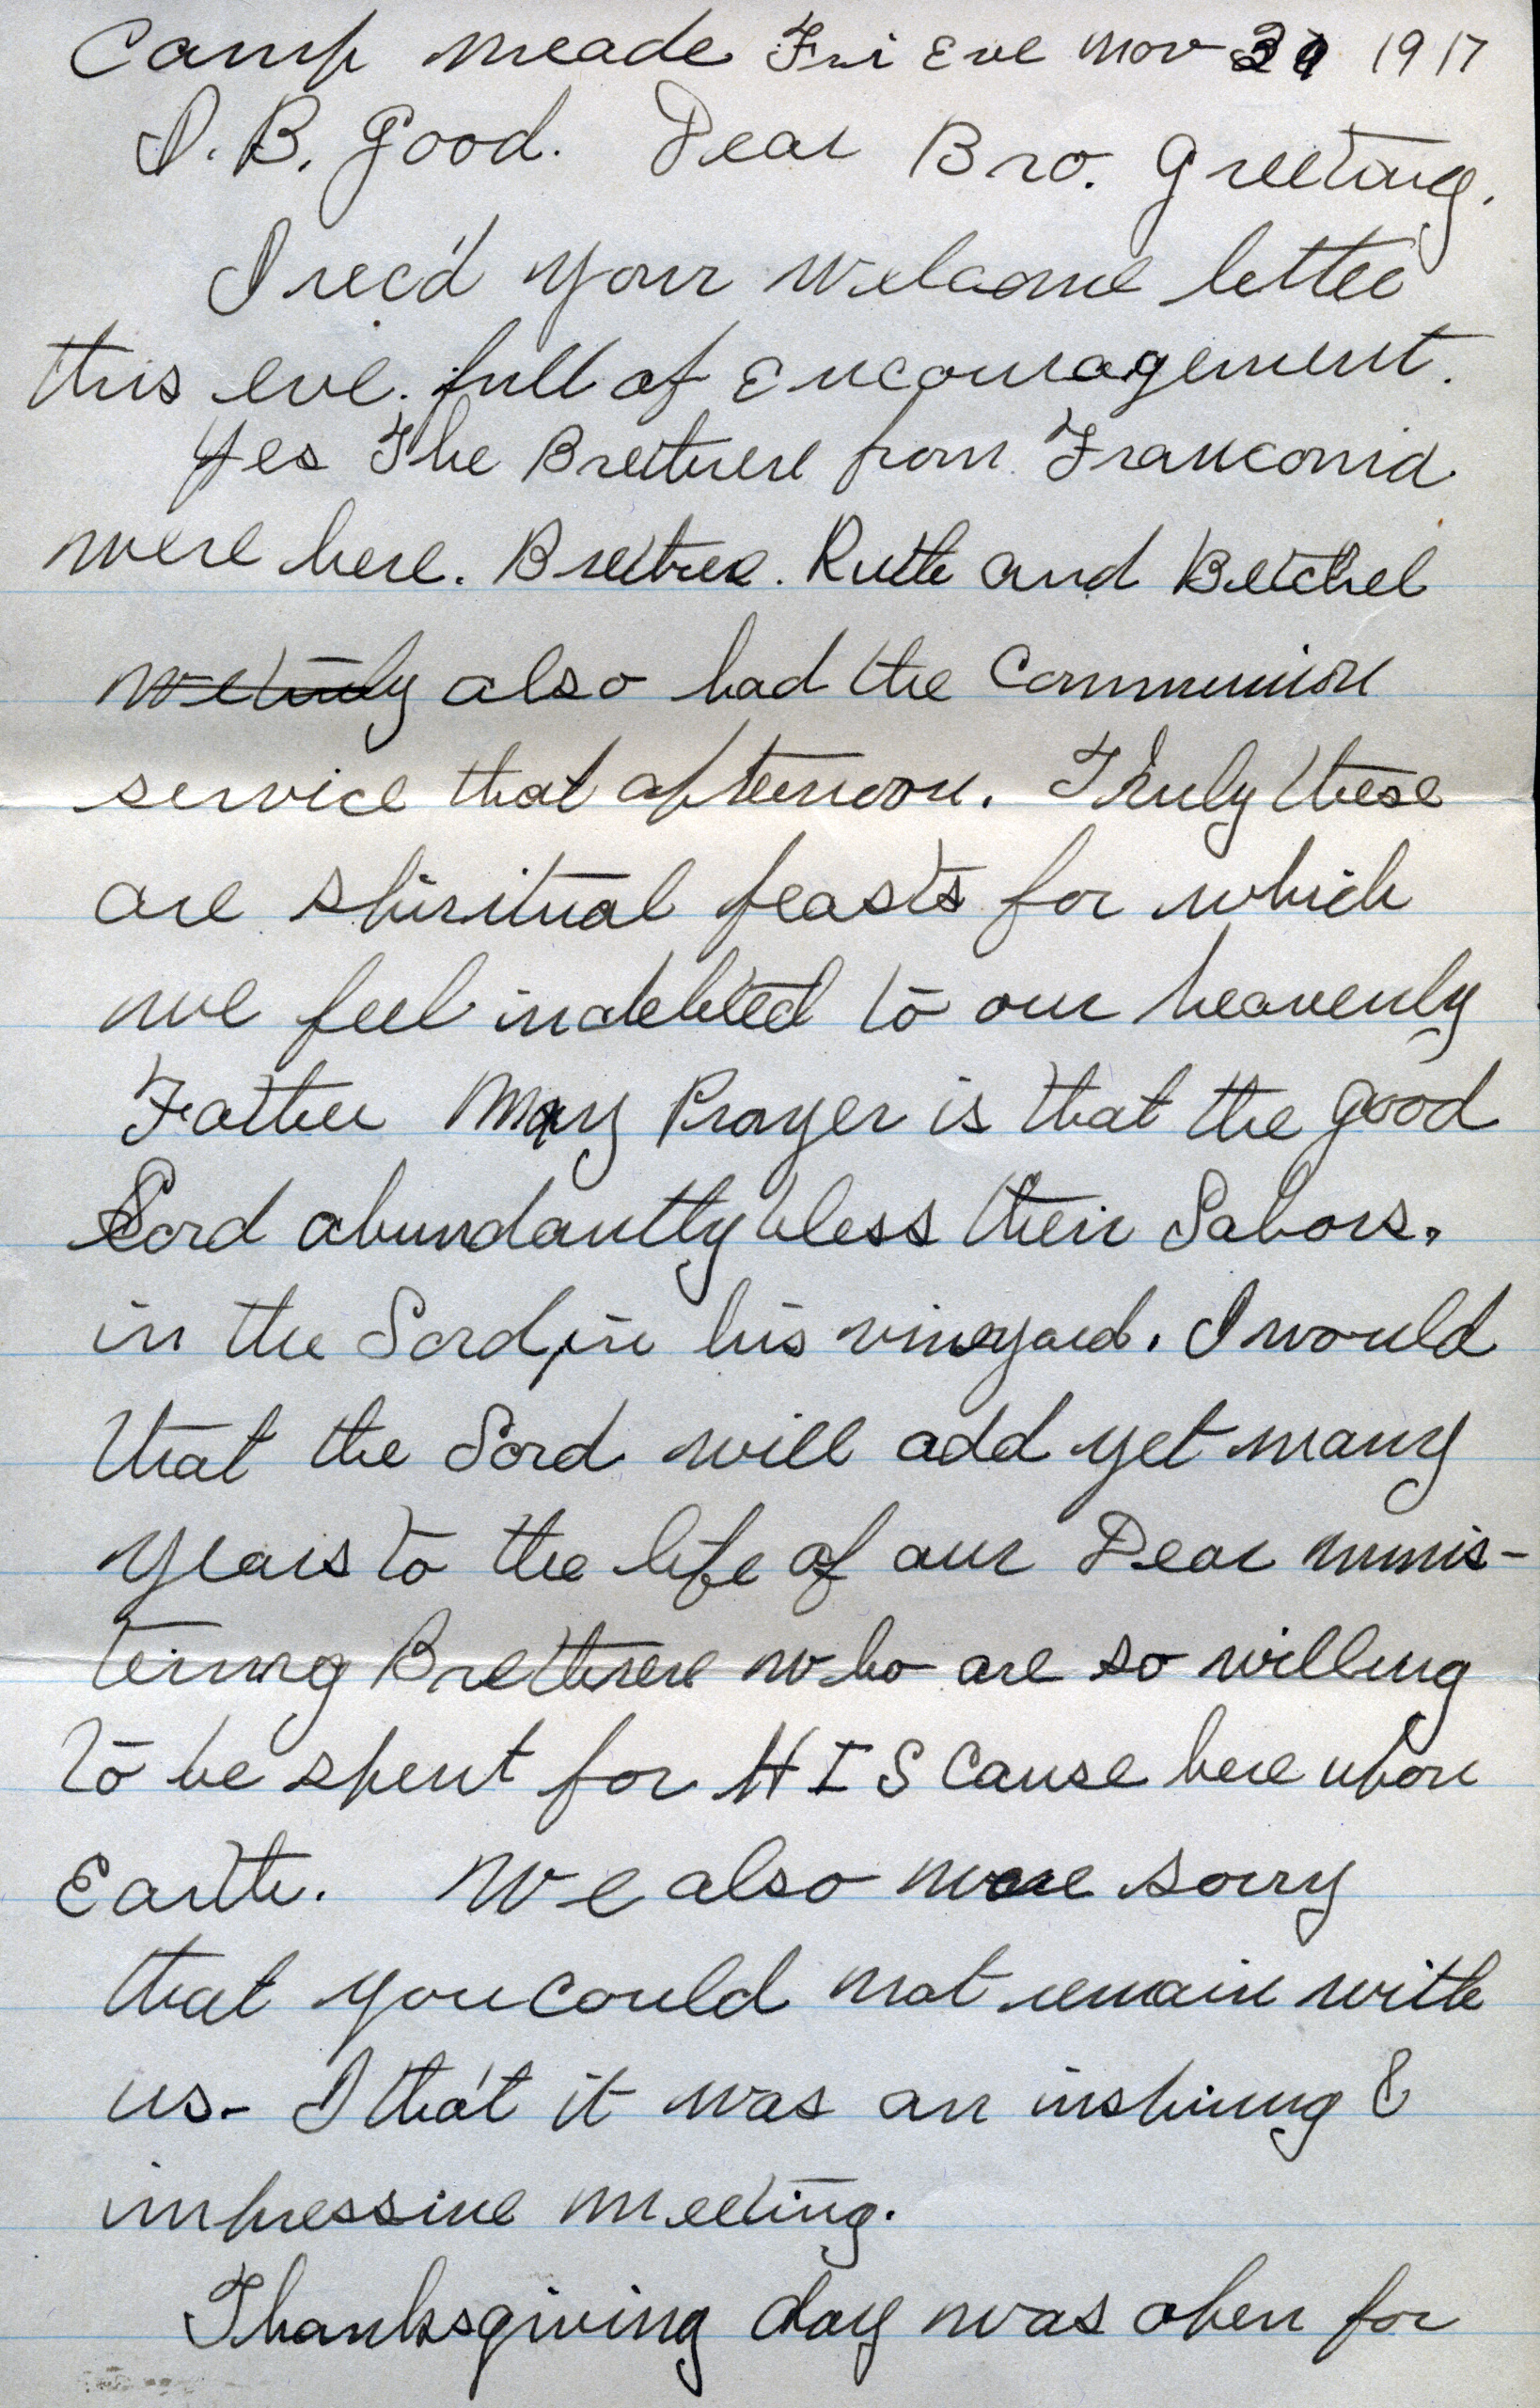 Camp Meade Fri Eve Nov 30 1917
I. B. Good. Dear Bro. Greeting.
I rec'd your welcome letter
this eve. full of Encouragement.
Yes The Brethren from Franconia
were here. Brethren. Ruth and Betchel
we truly also had the Communion
service that afternoon. Truly these
are spiritual feasts for which
we feel indebted to our heavenly
Father May Prayer is that the good
Lord abundantly bless their Labors.
in the Lord, in his vineyard. I would
that the Lord will add yet many
years to the life of our Dear minis-
tering Brethren who are so willing
to be spent for HIS Cause here upon
Earth. We also were sorry
that you could not remain with
us- I tho't it was an inspiring &
impressive meeting.
Thanksgiving day was open for